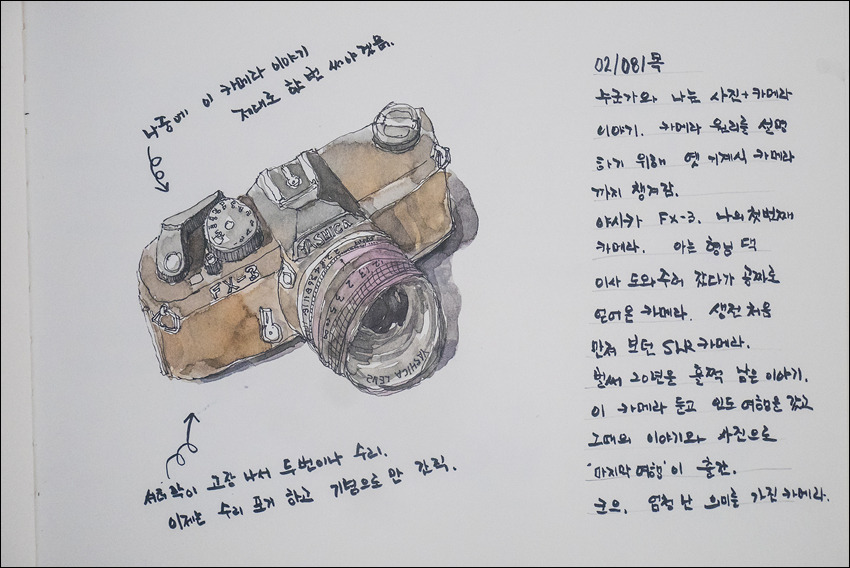 나중에 이 카메라 이야기
제대로 한 번 써야겠음.
YASHICA
FX-3
YASHICA LENS
셔터막이 고장 나서 두번이나 수리.
이제는 수리 포기 하고 기념으로 만 간직.
02/08/목
누군가와 나눈 사진+카메라
이야기. 카메라 원리를 설명
하기 위해 옛 기계식 카메라
까지 챙겨감.
야시카 FX-3. 나의 첫번째
카메라. 아는 형님 댁
이사 도와주러 갔다가 공짜로
얻어온 카메라. 생전 처음
만져 보던 SLR 카메라.
벌써 20년을 훌쩍 넘은 이야기.
이 카메라 들고 인도 여행을 갔고
그때의 이야기와 사진으로
'마지막 여행'이 출간.
엄청난 의미를 가진 카메라.